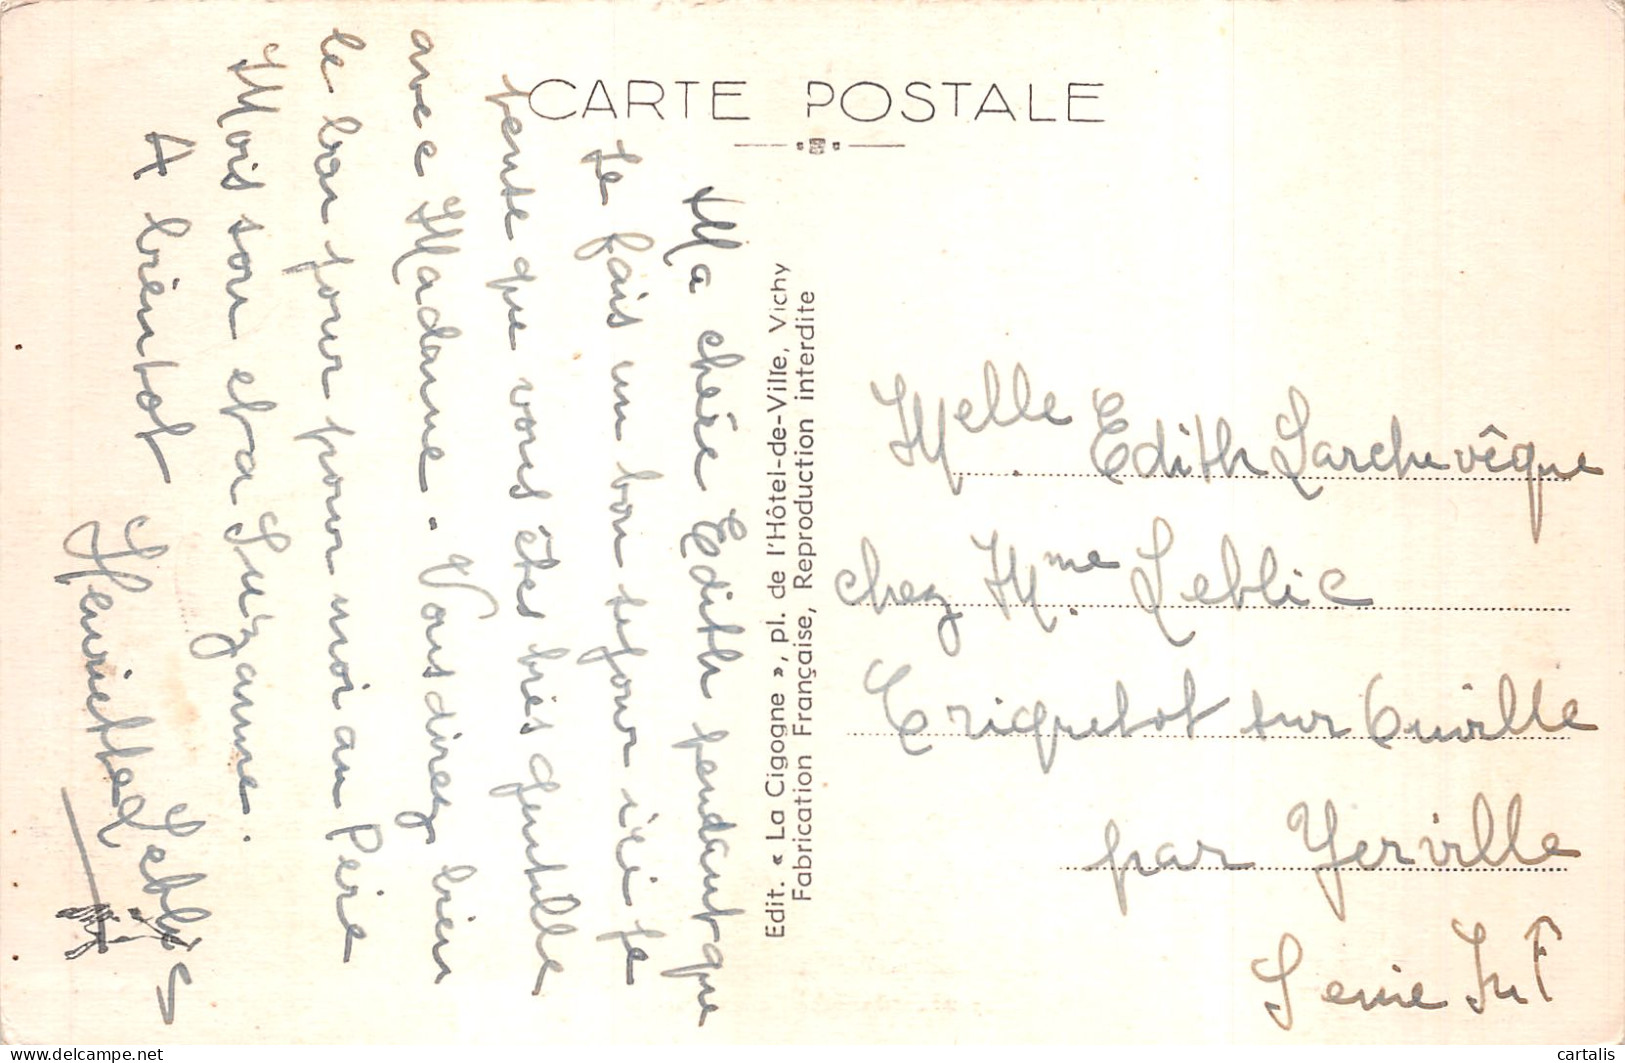 CARTE POSTALE
Ma chère Edith pendant que
je fais un bon sejour ici je
pense que vous êtes très gentille
avec Madame. Vous direz bien
le bon jour pour moi au Père
Mois son et a Suzanne.
A bientot
Henriette Leblic
Edit. « La Cigogne », pl. de l'Hôtel-de-Ville, Vichy
Fabrication Française, Reproduction interdite
Melle Edith Larchevêque
chez Mme Leblic
Criquetot sur Ouville
par Yerville
Seine Inf
cartalis